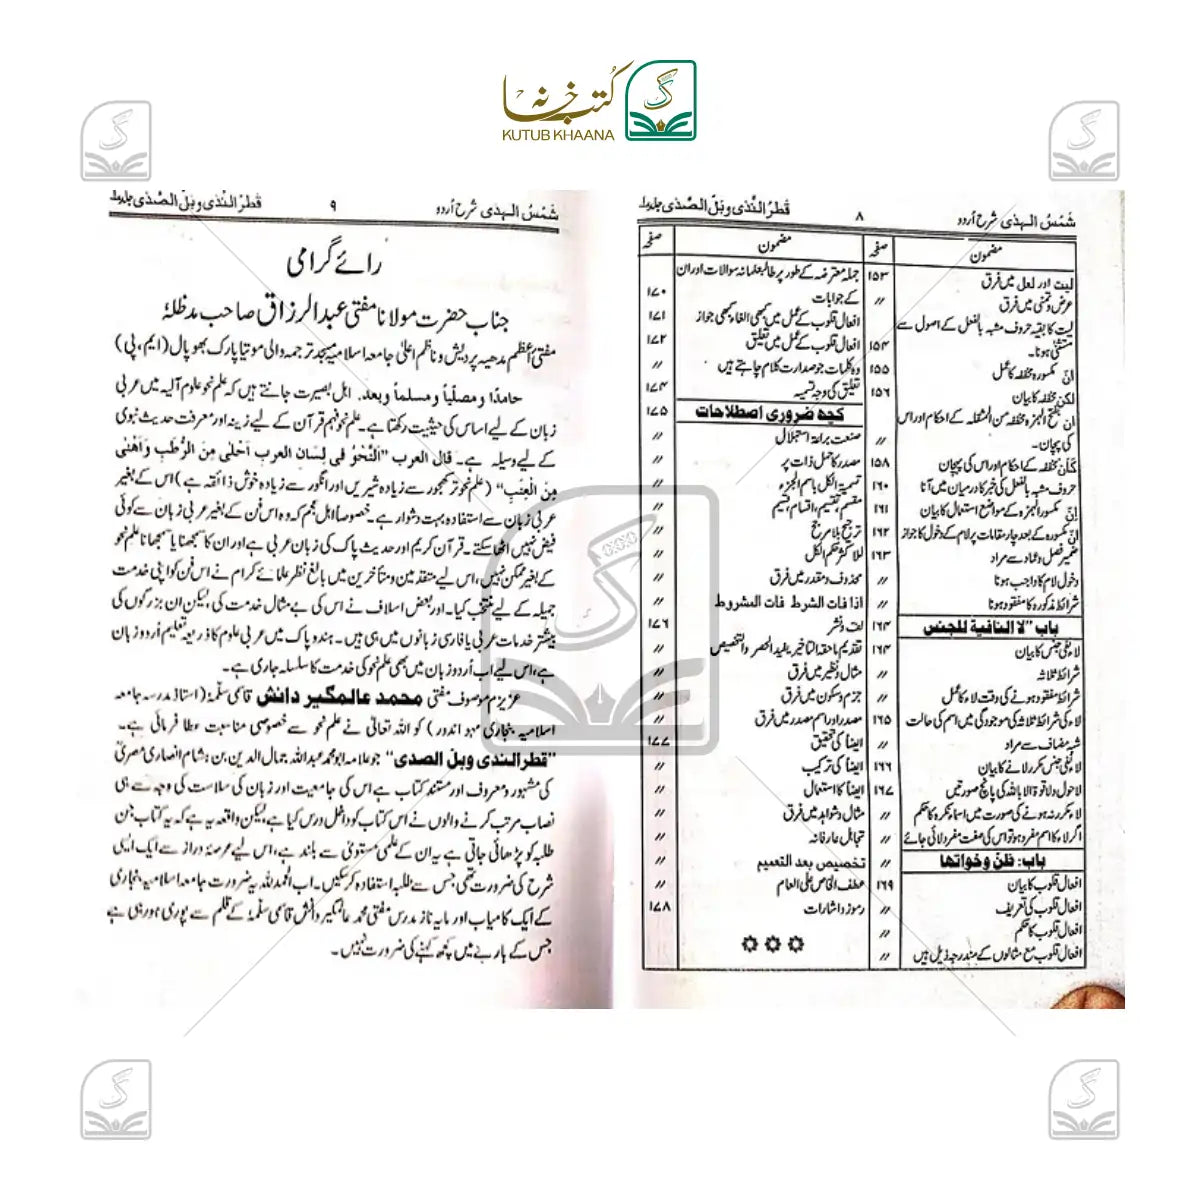 کتب خانہ
KUTUB KHAANA
شَمْسُ الہدٰی شرح اُردو
۸
قَطرُ النَّدٰی وبَلّ الصَّدٰی جلد اول
مضمون
صفحہ
لیت اور لعل میں فرق
۱۵۳
عرض وتمنی میں فرق
〃
لیت کا بقیہ حروف مشبہ بالفعل کے اصول سے
مستثنیٰ ہونا۔
۱۵۴
انّ مکسورہ مخففہ کا عمل
۱۵۵
لکن مخففہ کا بیان
۱۵۶
ان بفتح الہمزہ مخففہ من المثقلہ کے احکام اور اس
کی پہچان۔
〃
کَأَن مخففہ کے احکام اور اس کی پہچان
۱۵۸
حروف مشبہ بالفعل کی خبر کا درمیان میں آنا
۱۶۰
اِنّ مکسور الہمزہ کے مواضع استعمال کا بیان
۱۶۱
انّ مکسورہ کے بعد چار مقامات پر لام کے دخول کا جواز
۱۶۲
ضمیر فصل وعماد سے مراد
۱۶۳
دخول لام کا واجب ہونا
〃
شرائط مذکورہ کا مفقود ہونا
〃
باب "لا النافیة للجنس
۱۶۴
لاء نفی جنس کا بیان
۱۶۴
شرائط ثلاثہ
شرائط مفقود ہونے کی وقت لا کا عمل
لاء کی شرائط ثلاثہ کی موجودگی میں اسم کی حالت
۱۶۵
شبہ مضاف سے مراد
〃
لاء نفی جنس مکرر لانے کا بیان
۱۶۶
لاحول ولا قوۃ الا باللہ کی پانچ صورتیں
۱۶۷
لاء مکرر نہ ہونے کی صورت میں اسماء نکرہ کا حکم
〃
اگر لاء کا اسم مفرد ہو تو اس کی صفت مفرد لائی جائے
باب: ظنّ وخواتہا
〃
افعال قلوب کا بیان
۱۶۹
افعال قلوب کی تعریف
〃
افعال قلوب کا حکم
〃
افعال قلوب مع مثالوں کے مندرجہ ذیل ہیں
〃
مضمون
صفحہ
جملہ معترضہ کے طور پر طالبعلمانہ سوالات اور ان
کے جوابات
۱۷۰
افعال قلوب کے عمل میں کبھی الغاء کبھی جواز
۱۷۱
افعال قلوب کے عمل میں تعلیق
۱۷۲
وہ کلمات جو صدارت کلام چاہتے ہیں
〃
تعلیق کی وجہ تسمیہ
۱۷۴
کچھ ضروری اصطلاحات
۱۷۵
صنعت براعۃ استہلال
〃
مصدر کا حمل ذات پر
〃
تسمیۃ الکل باسم الجزء
〃
مقسم، تقسیم، اقسام، قسیم
〃
ترجیح بلا مرجح
〃
للاکثر حکم الکل
〃
محذوف ومقدر میں فرق
〃
اذا فات الشرط فات المشروط
〃
لف ونشر
۱۷۶
تقدیم ما حقہ التاخیر یفید الحصر والتخصیص
〃
مثال ونظیر میں فرق
〃
جزم وسکون میں فرق
〃
مصدر اور اسم مصدر میں فرق
〃
ایضاً کی تحقیق
۱۷۷
ایضاً کی ترکیب
〃
ایضاً کا استعمال
〃
مثال وشواہد میں فرق
〃
تجاہل عارفانہ
〃
تخصیص بعد التعمیم
〃
عطف الخاص علی العام
〃
رموز واشارات
۱۷۸
شَمْسُ الہدٰی شرح اُردو
۹
قَطرُ النَّدٰی وبَلّ الصَّدٰی جلد اول
رائے گرامی
جناب حضرت مولانا مفتی عبد الرزاق صاحب مدظلہٗ
مفتی اعظم مدھیہ پردیش وناظم اعلیٰ جامعہ اسلامیہ مسجد ترجمہ والی موتیا پارک بھوپال (ایم، پی)
حامدًا ومصلّیاً ومسلماً وبعد۔ اہل بصیرت جانتے ہیں کہ علم نحو علوم آلیہ میں عربی
زبان کے لیے اساس کی حیثیت رکھتا ہے۔ علم نحو فہم قرآن کے لیے زینہ اور معرفت حدیث نبوی
کے لیے وسیلہ ہے۔ قال العرب "اَلنَّحْوُ فِی لِسَانِ العرب اَحْلٰی مِنَ الرُّطَبِ وَاَهْنٰی
مِنَ الْعِنَبِ" (علم نحو تر کھجور سے زیادہ شیریں اور انگور سے زیادہ خوش ذائقہ ہے) اس کے بغیر
عربی زبان سے استفادہ بہت دشوار ہے۔ خصوصاً اہل عجم کہ وہ اس فن کے بغیر عربی زبان سے کوئی
فیض نہیں اٹھا سکتے۔ قرآن کریم اور حدیث پاک کی زبان عربی ہے اور ان کا سمجھنا یا سمجھانا علم نحو
کے بغیر ممکن نہیں، اس لیے متقدمین ومتأخرین میں بالغ نظر علمائے کرام نے اس فن کو اپنی خدمت
جمیلہ کے لیے منتخب کیا۔ اور بعض اسلاف نے اس کی بے مثال خدمت کی، لیکن ان بزرگوں کی
بیشتر خدمات عربی یا فارسی زبانوں میں ہی ہیں۔ ہند وپاک میں عربی علوم کا ذریعہ تعلیم اُردو زبان
ہے، اس لیے اب اُردو زبان میں بھی علم نحو کی خدمت کا سلسلہ جاری ہے۔
عزیزم موصوف مفتی محمد عالمگیر دانش قاسمی سلمہٗ (استاذ مدرسہ جامعہ
اسلامیہ بنجاری مہو اندور) کو اللہ تعالیٰ نے علم نحو سے خصوصی مناسبت عطا فرمائی ہے۔
"قطر الندی وبل الصدی" جو علامہ ابو محمد عبد اللہ جمال الدین بن ہشام انصاری مصریؒ
کی مشہور ومعروف اور مستند کتاب ہے اس کی جامعیت اور زبان کی سلاست کی وجہ سے ہی
نصاب مرتب کرنے والوں نے اس کتاب کو داخل درس کیا ہے، لیکن واقعہ یہ ہے کہ یہ کتاب جن
طلبہ کو پڑھائی جاتی ہے یہ ان کے علمی مستویٰ سے بلند ہے، اس لیے عرصۂ دراز سے ایک ایسی
شرح کی ضرورت تھی جس سے طلبہ استفادہ کر سکیں۔ اب الحمد للہ یہ ضرورت جامعہ اسلامیہ بنجاری
کے ایک کامیاب اور مایہ ناز مدرس مفتی محمد عالمگیر دانش قاسمی سلمہٗ کے قلم سے پوری ہو رہی ہے
جس کے بارے میں کچھ کہنے کی ضرورت نہیں۔